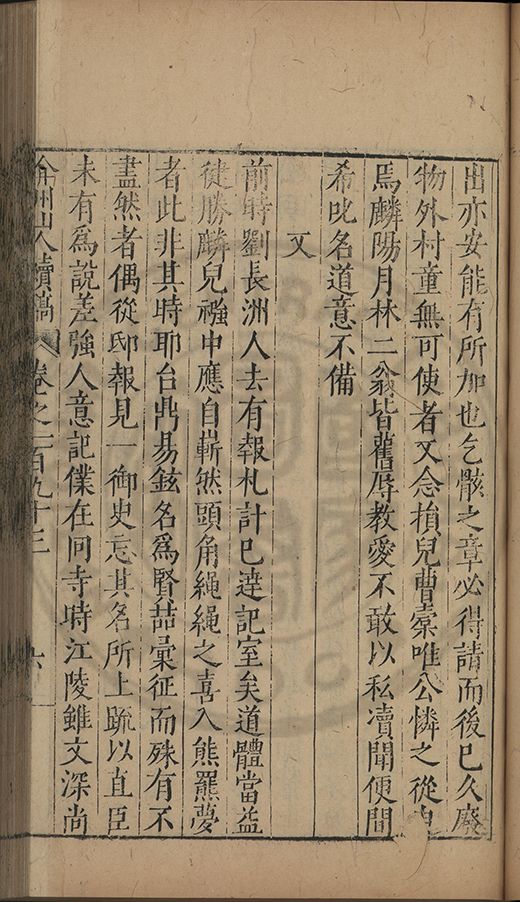 出亦安能有所加也乞骸之章必得請而後已久廢
物外村童無可使者又念損兒曹槖唯公憐之從
焉麟陽月林二翁皆舊辱教愛不敢以私凟聞便間
希叱名道意不備
又
前時劉長洲人去有報札計已達記室矣道體當益
徤勝麟兒襁中應自嶄然頭角繩繩之喜入熊羆夢
者此非其時耶台鼎易鉉名爲賢喆彙征而殊有不
盡然者偶從邸報見一御史忘其名所上䟽以直臣
未有爲說差強人意記僕在同寺時江陵雖文深尚
弇州山人續稿 卷之一百九十三 六